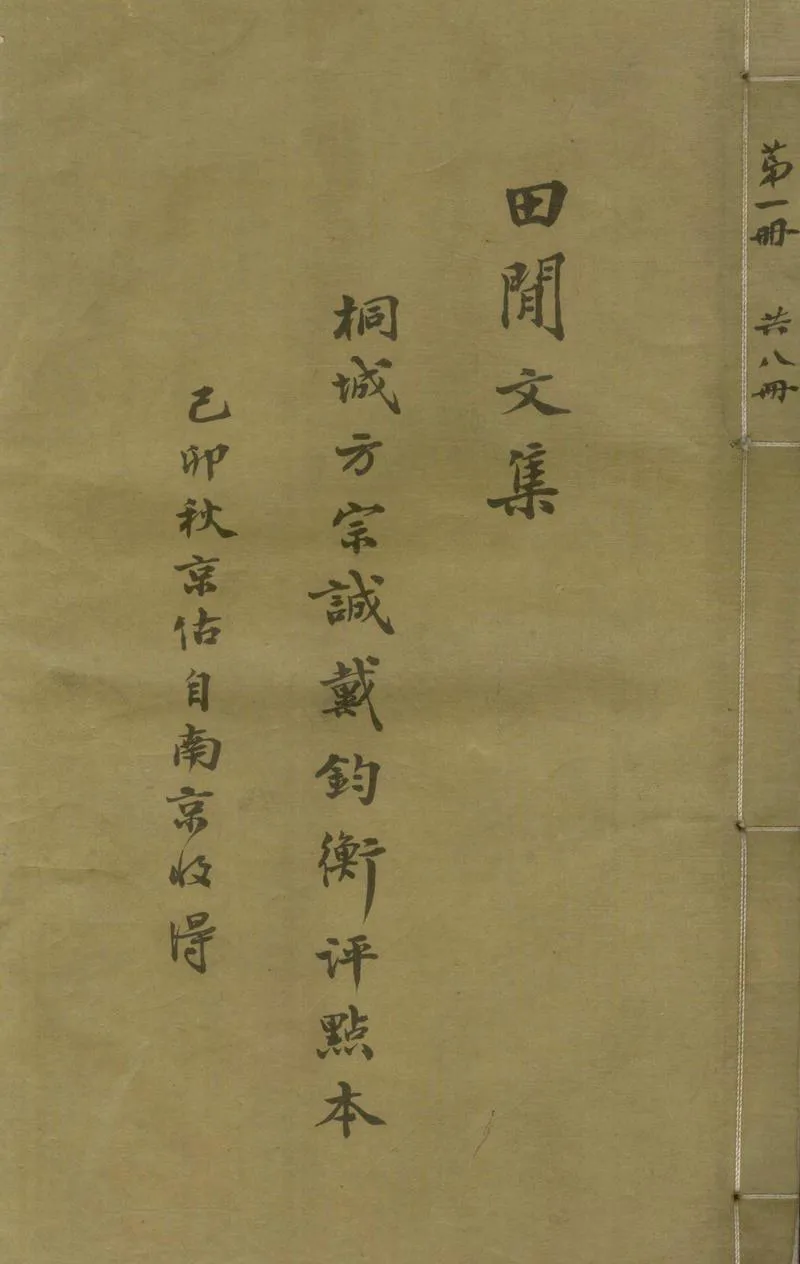 第一冊 共八冊
田閒文集
桐城方宗誠戴鈞衡评點本
己卯秋京估自南京收得